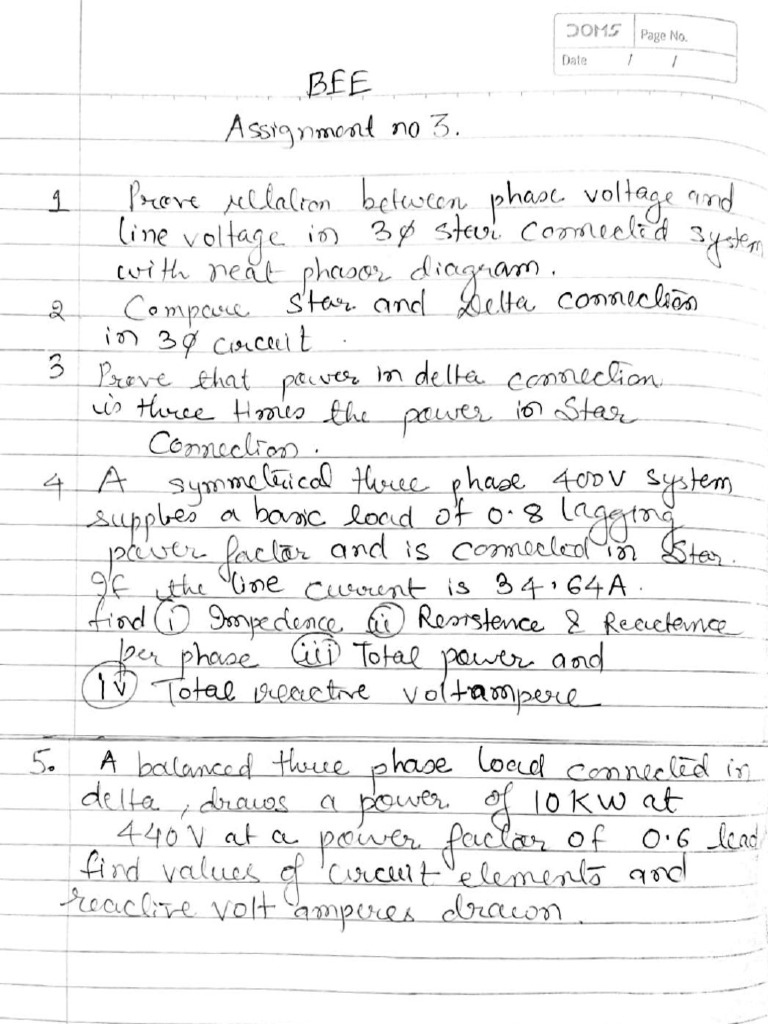 DOMS Page No.
Date / /
BEE
Assignment no 3.
1 Prove relation between phase voltage and
line voltage in 3φ star connected system
with neat phasor diagram.
2 Compare Star and Delta connection
in 3φ circuit.
3 Prove that power in delta connection
is three times the power in Star
Connection.
4 A symmetrical three phase 400V system
supplies a basic load of 0.8 lagging
power factor and is connected in Star.
If the line current is 34.64A.
find (i) Impedence (ii) Resistence & Reactence
per phase (iii) Total power and
(iv) Total reactive voltampere
5. A balanced three phase load connected in
delta, draws a power of 10KW at
440V at a power factor of 0.6 lead
find values of circuit elements and
reactive volt amperes drawn.